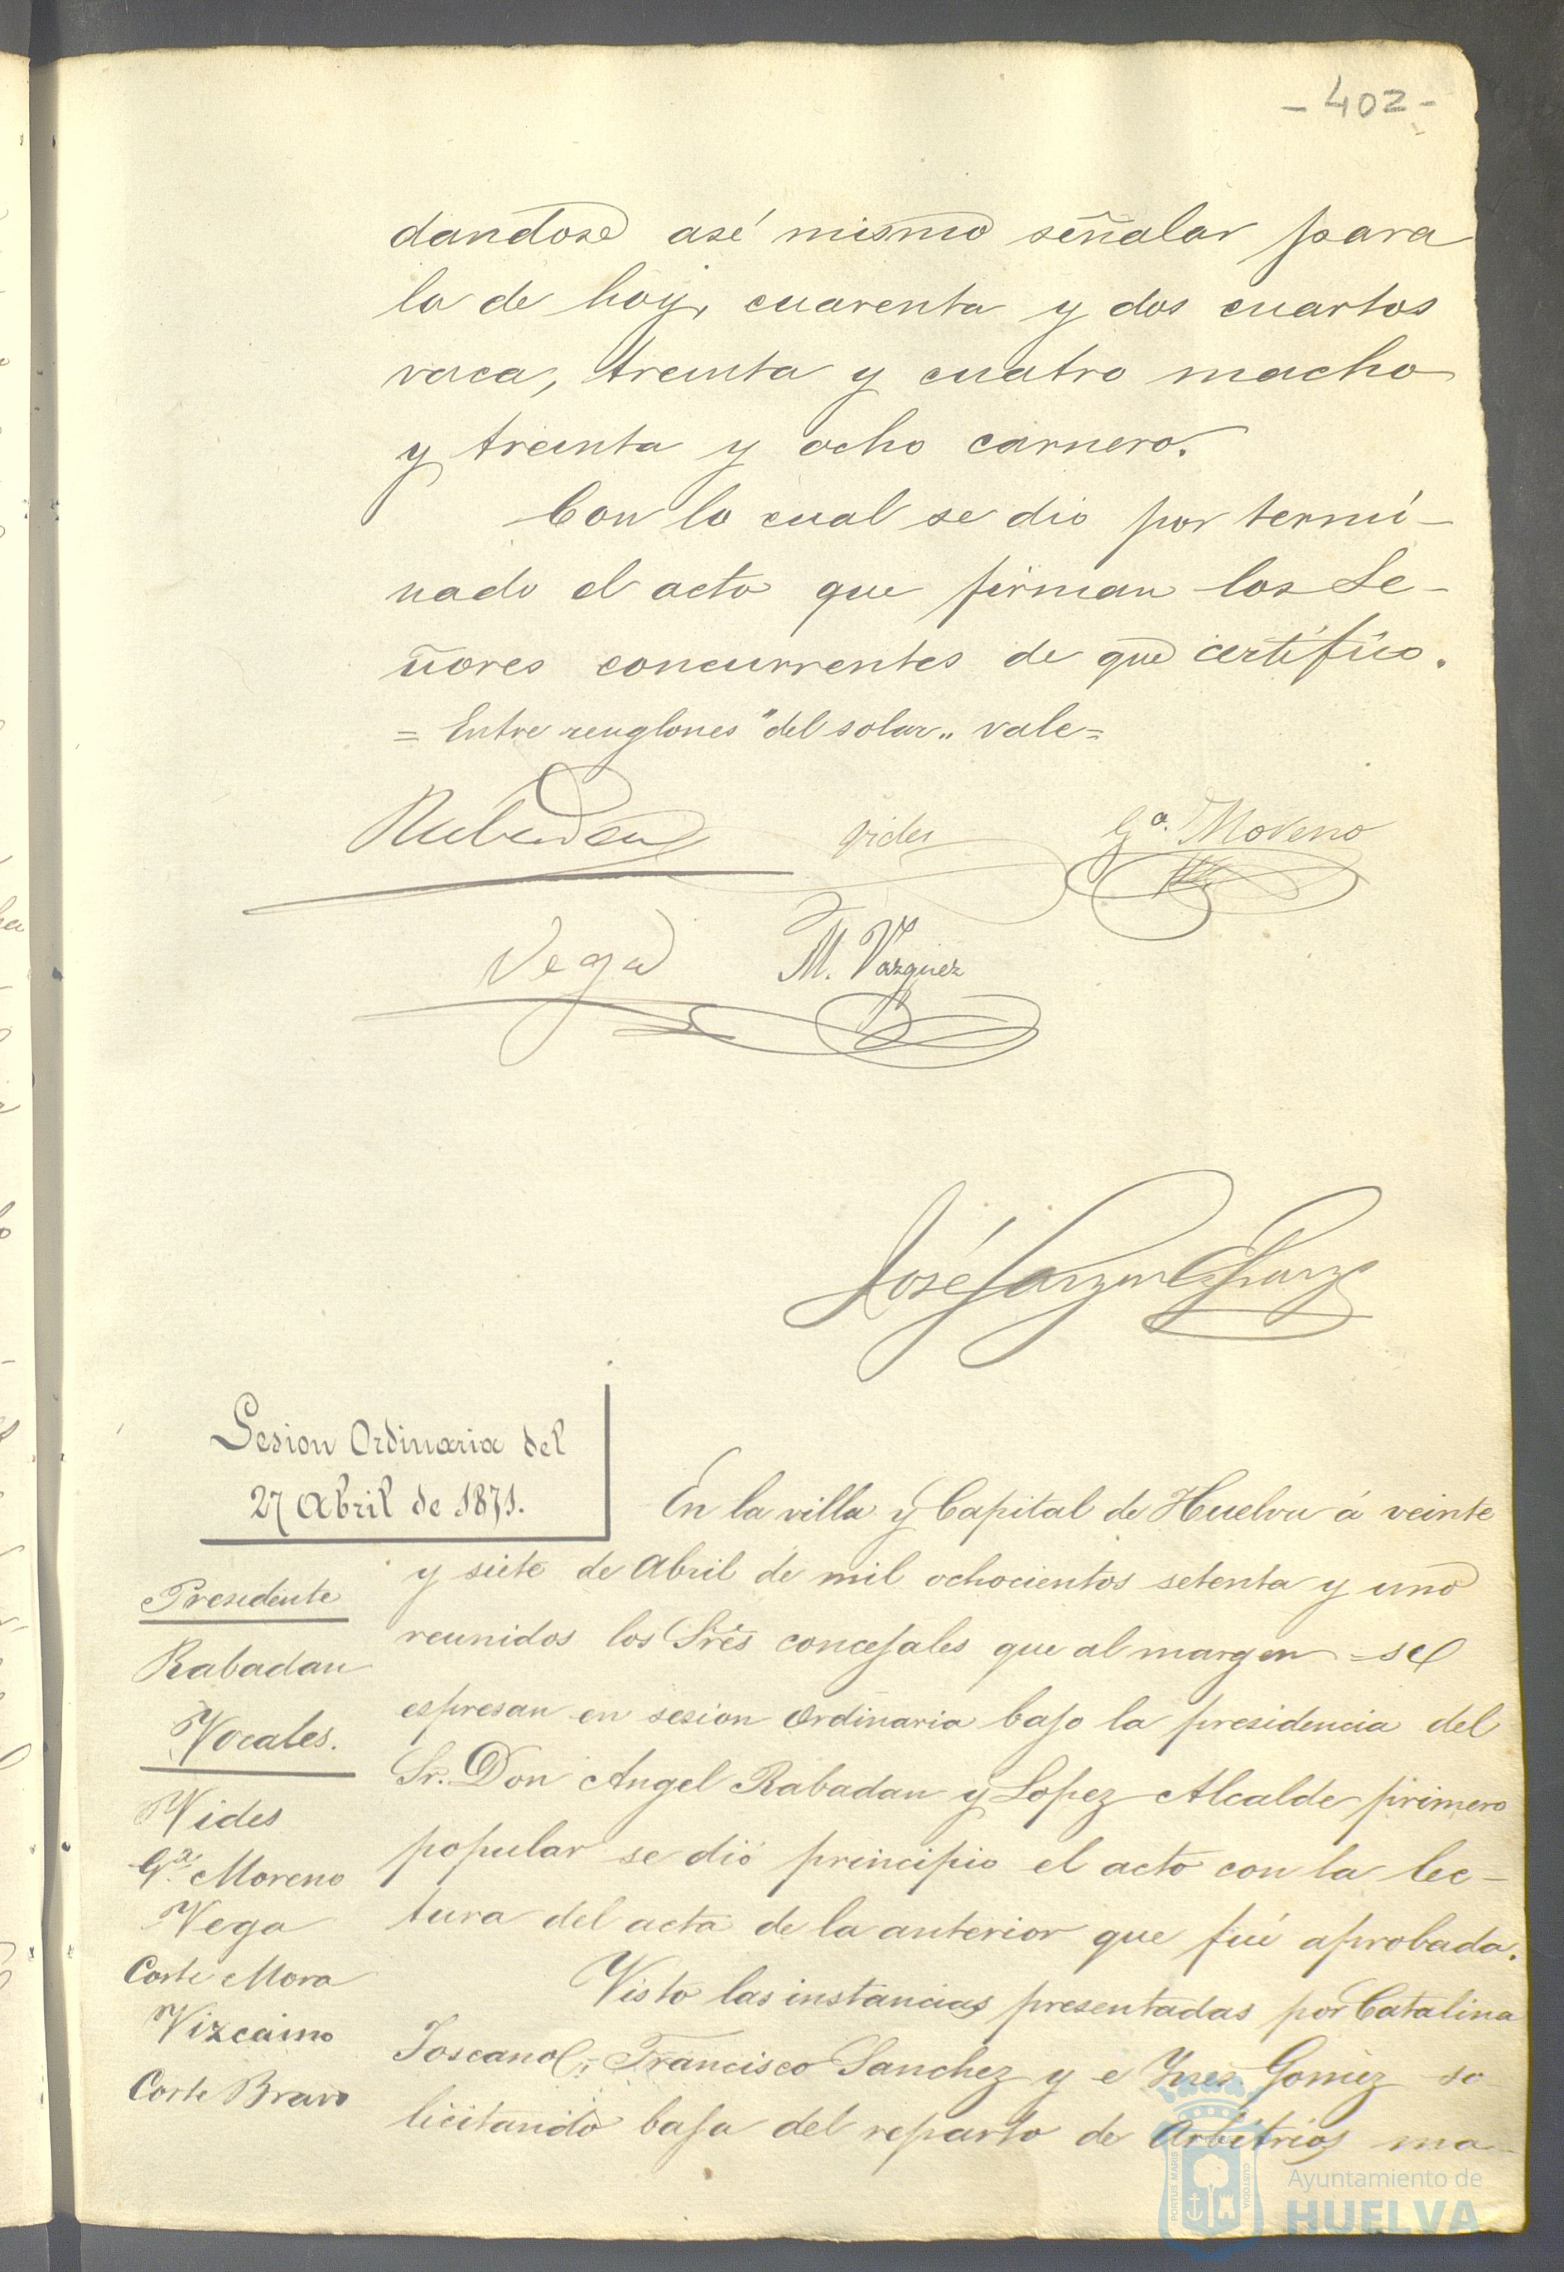 - 402 -
dandose asé mismo señalar para
la de hoy, cuarenta y dos cuartos
vaca, treinta y cuatro macho
y treinta y ocho carnero.
Con lo cual se dio por termi-
nado el acto que firman los Se-
ñores concurrentes de que certifico.
= Entre renglones "del solar" vale=
Rabadan Vides Gª. Moreno
Vega M. Vazquez
José
Sesion Ordinaria del
27 Abril de 1871.
En la villa y Capital de Huelva á veinte
y siete de Abril de mil ochocientos setenta y uno
reunidos los Sres concejales que al margen = se
espresan en sesion Ordinaria bajo la presidencia del
Sr. Don Angel Rabadan y Lopez Alcalde primero
popular se dió principio el acto con la lec-
tura del acta de la anterior que fué aprobada.
Visto las instancias presentadas por Catalina
Toscano, Francisco Sanchez y e Ynes Gomez so-
licitando baja del reparto de Arbitrios ma-
Presidente
Rabadan
Vocales.
Vides
Gª. Moreno
Vega
Corte Mora
Vizcaino
Corte Bravo
PORTUS MARIS
CUSTODIA
Ayuntamiento de
HUELVA